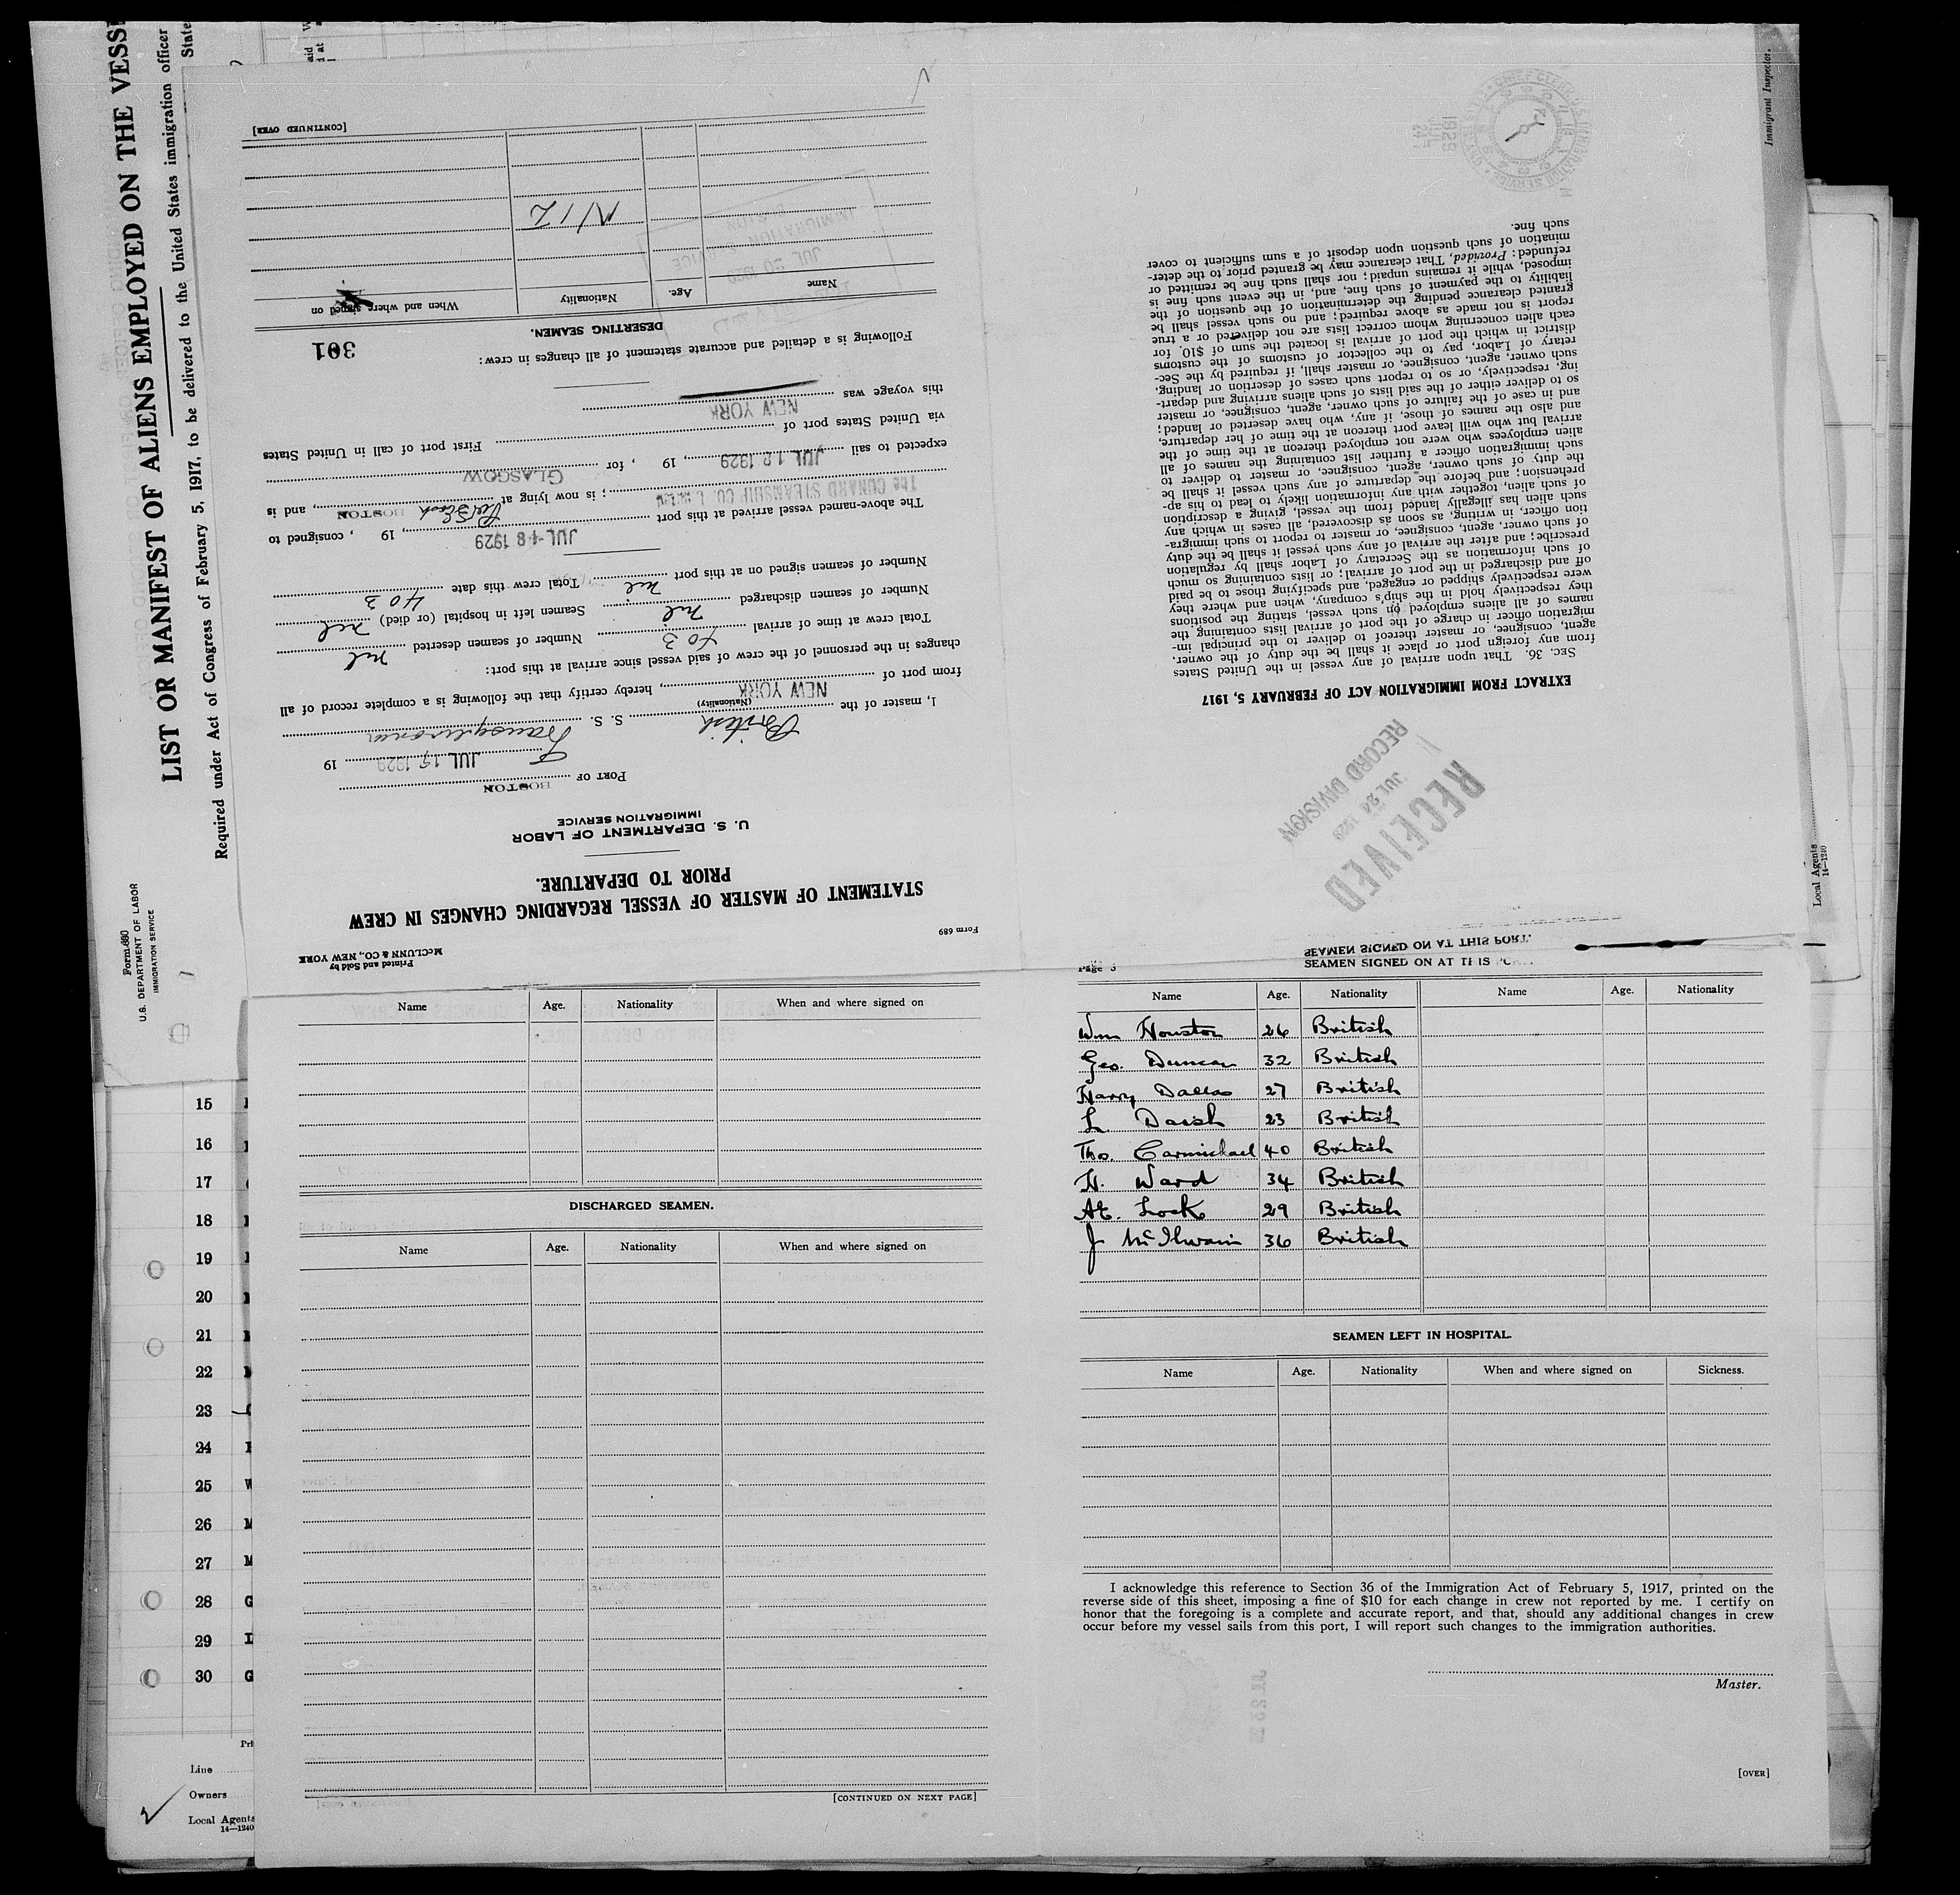 LIST OR MANIFEST OF ALIENS EMPLOYED ON THE VESS
Required under Act of Congress of February 5, 1917, to be delivered to the United States immigration officer
State
Form 680
U.S. DEPARTMENT OF LABOR
IMMIGRATION SERVICE
Immigrant Inspector.
Local Agents
14—1240
Printed and Sold by
McCLUNN & CO., NEW YORK
Form 689
STATEMENT OF MASTER OF VESSEL REGARDING CHANGES IN CREW
PRIOR TO DEPARTURE.
U. S. DEPARTMENT OF LABOR
IMMIGRATION SERVICE
PORT OF BOSTON
JUL 1929 19
I, master of the British S. S. Transylvania
(Nationality)
from port of NEW YORK, hereby certify that the following is a complete record of all
changes in the personnel of the crew of said vessel since arrival at this port:
Total crew at time of arrival 403 Number of seamen deserted nil
Number of seamen discharged nil Seamen left in hospital (or died) nil
Number of seamen signed on at this port nil Total crew this date 403
The above-named vessel arrived at this port JUL 18 1929, 19 , consigned to
The CUNARD STEAMSHIP CO. Limited; is now lying at BOSTON, and is
expected to sail JUL 18 1929, 19 , for GLASGOW
via United States port of First port of call in United States
this voyage was NEW YORK
Following is a detailed and accurate statement of all changes in crew:
301
DESERTING SEAMEN.
Name Age. Nationality When and where signed on
NIL
IMMIGRATION SERVICE
JUL 20 1929
[CONTINUED OVER]
EXTRACT FROM IMMIGRATION ACT OF FEBRUARY 5, 1917
SEC. 36. That upon arrival of any vessel in the United States
from any foreign port or place it shall be the duty of the owner,
agent, consignee, or master thereof to deliver to the principal im-
migration officer in charge of the port of arrival lists containing the
names of all aliens employed on such vessel, stating the positions
they respectively hold in the ship's company, when and where they
were respectively shipped or engaged, and specifying those to be paid
off and discharged in the port of arrival; or lists containing so much
of such information as the Secretary of Labor shall by regulation
prescribe; and after the arrival of any such vessel it shall be the duty
of such owner, agent, consignee, or master to report to such immigra-
tion officer, in writing, as soon as discovered, all cases in which any
such alien has illegally landed from the vessel, giving a description
of such alien, together with any information likely to lead to his ap-
prehension; and before the departure of any such vessel it shall be
the duty of such owner, agent, consignee, or master to deliver to
such immigration officer a further list containing the names of all
alien employees who were not employed thereon at the time of the
arrival but who will leave port thereon at the time of her departure,
and also the names of those, if any, who have deserted or landed;
and in case of the failure of such owner, agent, consignee, or master
so to deliver either of the said lists of such aliens arriving and depart-
ing, respectively, or so to report such cases of desertion or landing,
such owner, agent, consignee, or master shall, if required by the Sec-
retary of Labor, pay to the collector of customs of the customs
district in which the port of arrival is located the sum of $10. for
each alien concerning whom correct lists are not delivered or a true
report is not made as above required; and no such vessel shall be
granted clearance pending the determination of the question of the
liability to the payment of such fine, and, in the event such fine is
imposed, while it remains unpaid; nor shall such fine be remitted or
refunded: Provided, That clearance may be granted prior to the deter-
mination of such question upon deposit of a sum sufficient to cover
such fine.
RECEIVED
JUL 24 1929
RECORD DIVISION
Name Age. Nationality When and where signed on
DISCHARGED SEAMEN.
Name Age. Nationality When and where signed on
[CONTINUED ON NEXT PAGE]
Page 3
SEAMEN SIGNED ON AT THIS PORT.
Name Age. Nationality Name Age. Nationality
Wm Houston 26 British
Geo. Duncan 32 British
Harry Dallas 27 British
L. Daish 23 British
Tho. Carmichael 40 British
H. Ward 34 British
AE. Lock 29 British
J McIlwain 36 British
SEAMEN LEFT IN HOSPITAL.
Name Age. Nationality When and where signed on Sickness.
I acknowledge this reference to Section 36 of the Immigration Act of February 5, 1917, printed on the
reverse side of this sheet, imposing a fine of $10 for each change in crew not reported by me. I certify on
honor that the foregoing is a complete and accurate report, and that, should any additional changes in crew
occur before my vessel sails from this port, I will report such changes to the immigration authorities.
Master.
[OVER]
15
16
17
18
19
20
21
22
23
24
25
26
27
28 G
29
30 G
Line
Owners
Local Agents
14—1240